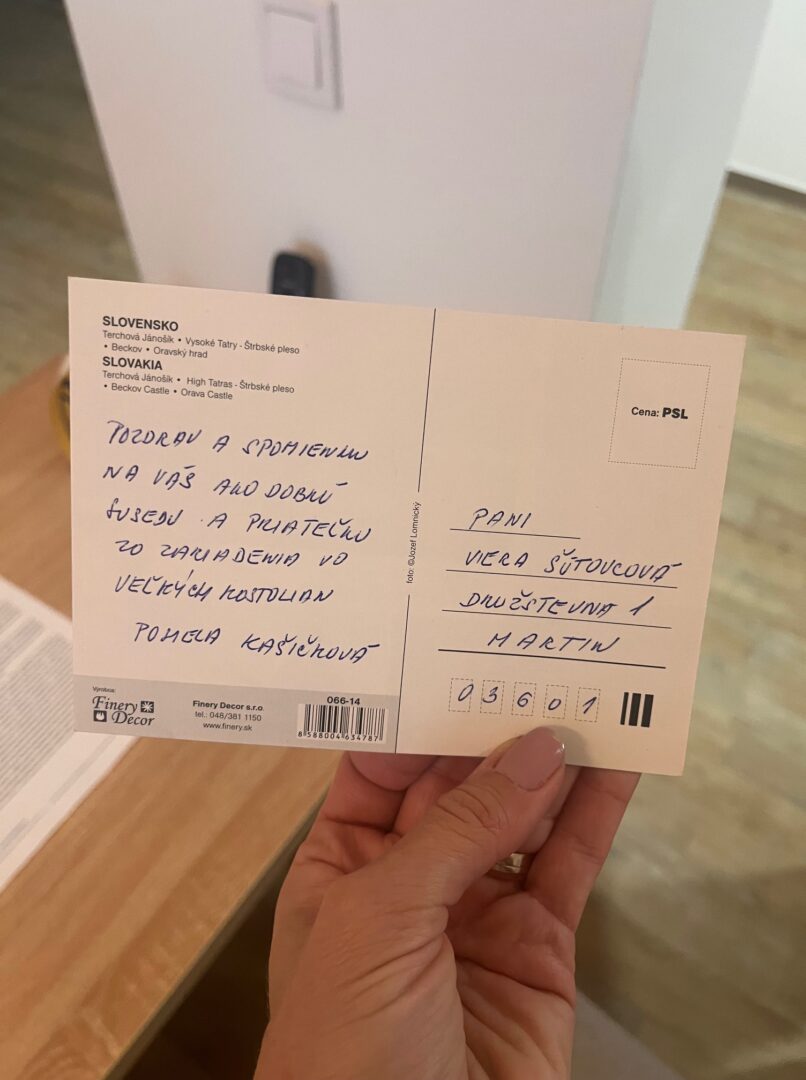 SLOVENSKO
Terchová Jánošík • Vysoké Tatry - Štrbské pleso
• Beckov • Oravský hrad
SLOVAKIA
Terchová Jánošík • High Tatras - Štrbské pleso
• Beckov Castle • Orava Castle
POZDRAV A SPOMIENKU
NA VÁS AKO DOBRÚ
SUSEDU A PRIATEĽKU
ZO ZARIADENIA VO
VEĽKÝCH KOSTOĽAN
POMELA KAŠIČKOVÁ
Výrobca:
Finery
Decor
Finery Decor s.r.o.
tel.: 048/381 1150
www.finery.sk
066-14
8 588004 634787
foto: ©Jozef Lomnický
Cena: PSL
PANI
VIERA ŠÚTOVCOVÁ
DRUŽSTEVNÁ 1
MARTIN
0 3 6 0 1